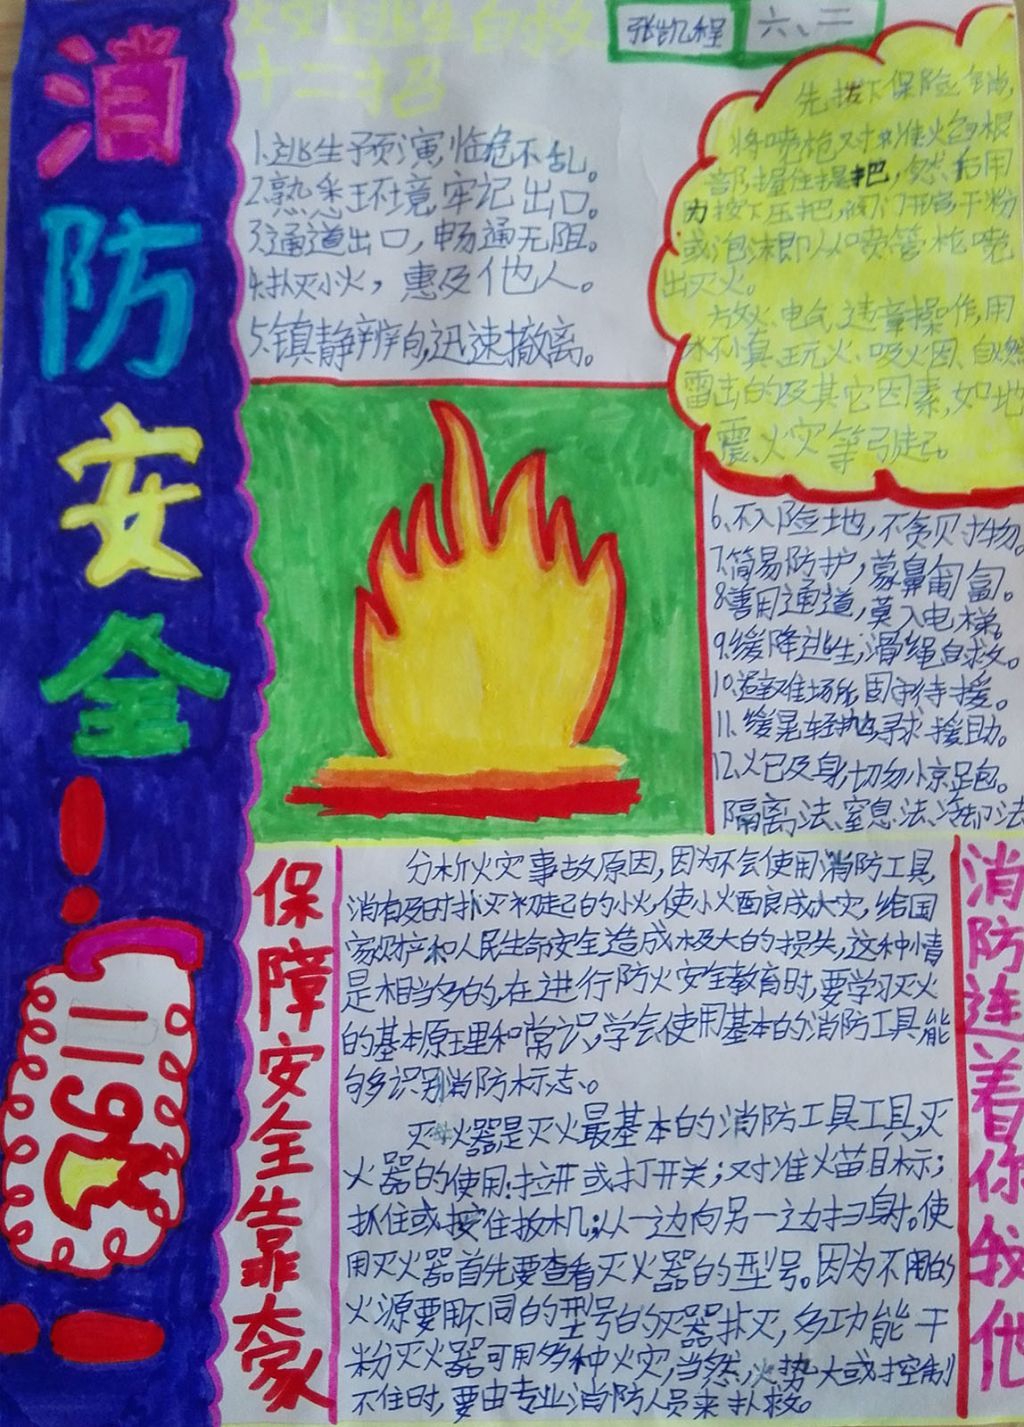 消防安全！
119
火灾逃生自救
十二招
张凯程
六、二
1.逃生预演,临危不乱。
2.熟悉环境,牢记出口。
3.通道出口,畅通无阻。
4.扑灭小火，惠及他人。
5.镇静辨向,迅速撤离。
先拔下保险销,
将喷枪对准火的根
部握住提把,然后用
力按下压把,阀门开启,干粉
或泡沫即从喷管枪喷
出灭火。
放火、电气、违章操作,用
火不慎、玩火、吸火因、自燃
雷击的及其它因素,如地
震、火灾等引起。
6.不入险地,不贪财物。
7.简易防护,蒙鼻匍匐。
8.善用通道,莫入电梯。
9.缓降逃生,滑绳自救。
10.避难场所,固守待援。
11.缓晃轻抛,寻求援助。
12.火已及身,切勿惊跑。
隔离法、窒息法、冷却法
保障安全靠大家
分析火灾事故原因,因为不会使用消防工具,
消有及时扑灭初起的小火,使小火酿成大灾,给国
家财产和人民生命安全造成极大的损失,这种情
是相当多的,在进行防火安全教育时,要学习灭火
的基本原理和常识,学会使用基本的消防工具,能
够多识别消防标志。
灭火器是灭火最基本的消防工具工具,灭
火器的使用:拉开或打开关;对准火苗目标;
抓住或按住扳机;从一边向另一边扫射。使
用灭火器首先要查看灭火器的型号。因为不同的
火源要用不同的型号的灭器扑灭,多功能干
粉灭火器可用多种火灾,当然,火势大或控制
不住时,要由专业消防人员来扑救。
消防连着你我他